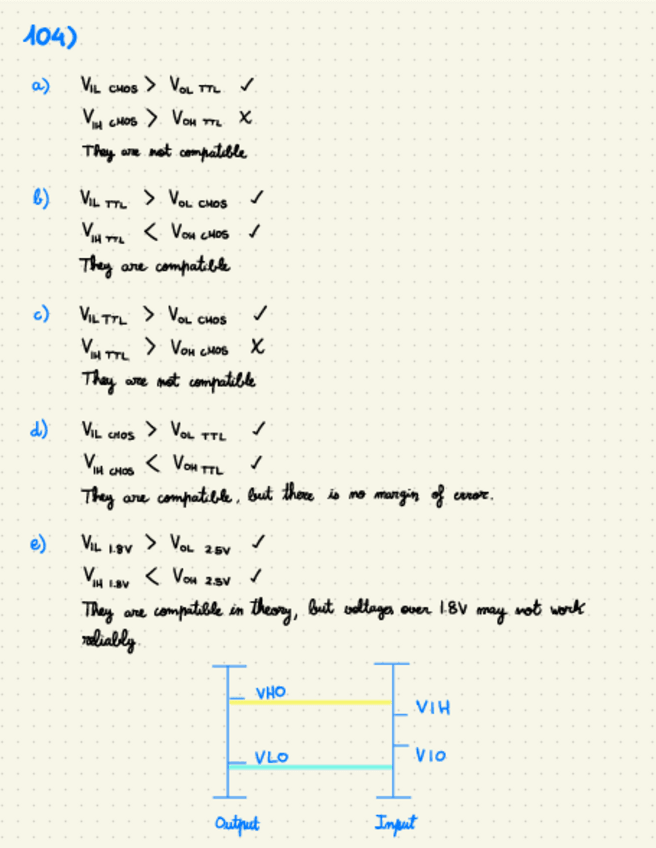 104)
a) VIL CMOS > VOL TTL ✓
VIH CMOS > VOH TTL X
They are not compatible
b) VIL TTL > VOL CMOS ✓
VIH TTL < VOH CMOS ✓
They are compatible
c) VIL TTL > VOL CMOS ✓
VIH TTL > VOH CMOS X
They are not compatible
d) VIL CMOS > VOL TTL ✓
VIH CMOS < VOH TTL ✓
They are compatible, but there is no margin of error.
e) VIL 1.8V > VOL 2.5V ✓
VIH 1.8V < VOH 2.5V ✓
They are compatible in theory, but voltages over 1.8V may not work
reliably.
VHO
VIH
VLO
VIO
Output Input